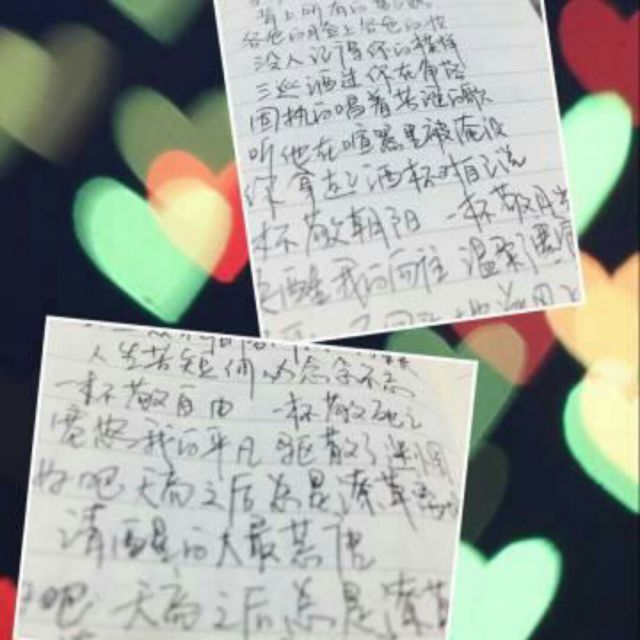 背上所有的梦与想
各色的脸上各色的妆
没人记得你的模样
三巡酒过你在角落
固执的唱着苦涩的歌
听他在喧嚣里被淹没
你拿起酒杯对自己说
杯敬朝阳 一杯敬月光
醒我的向往 温柔了寒
人生苦短何必念念不忘
一杯敬自由 一杯敬死亡
宽恕我的平凡 驱散了迷惘
好吧天亮之后总是潦草离
清醒的人最荒唐
吧 天亮之后总是潦草